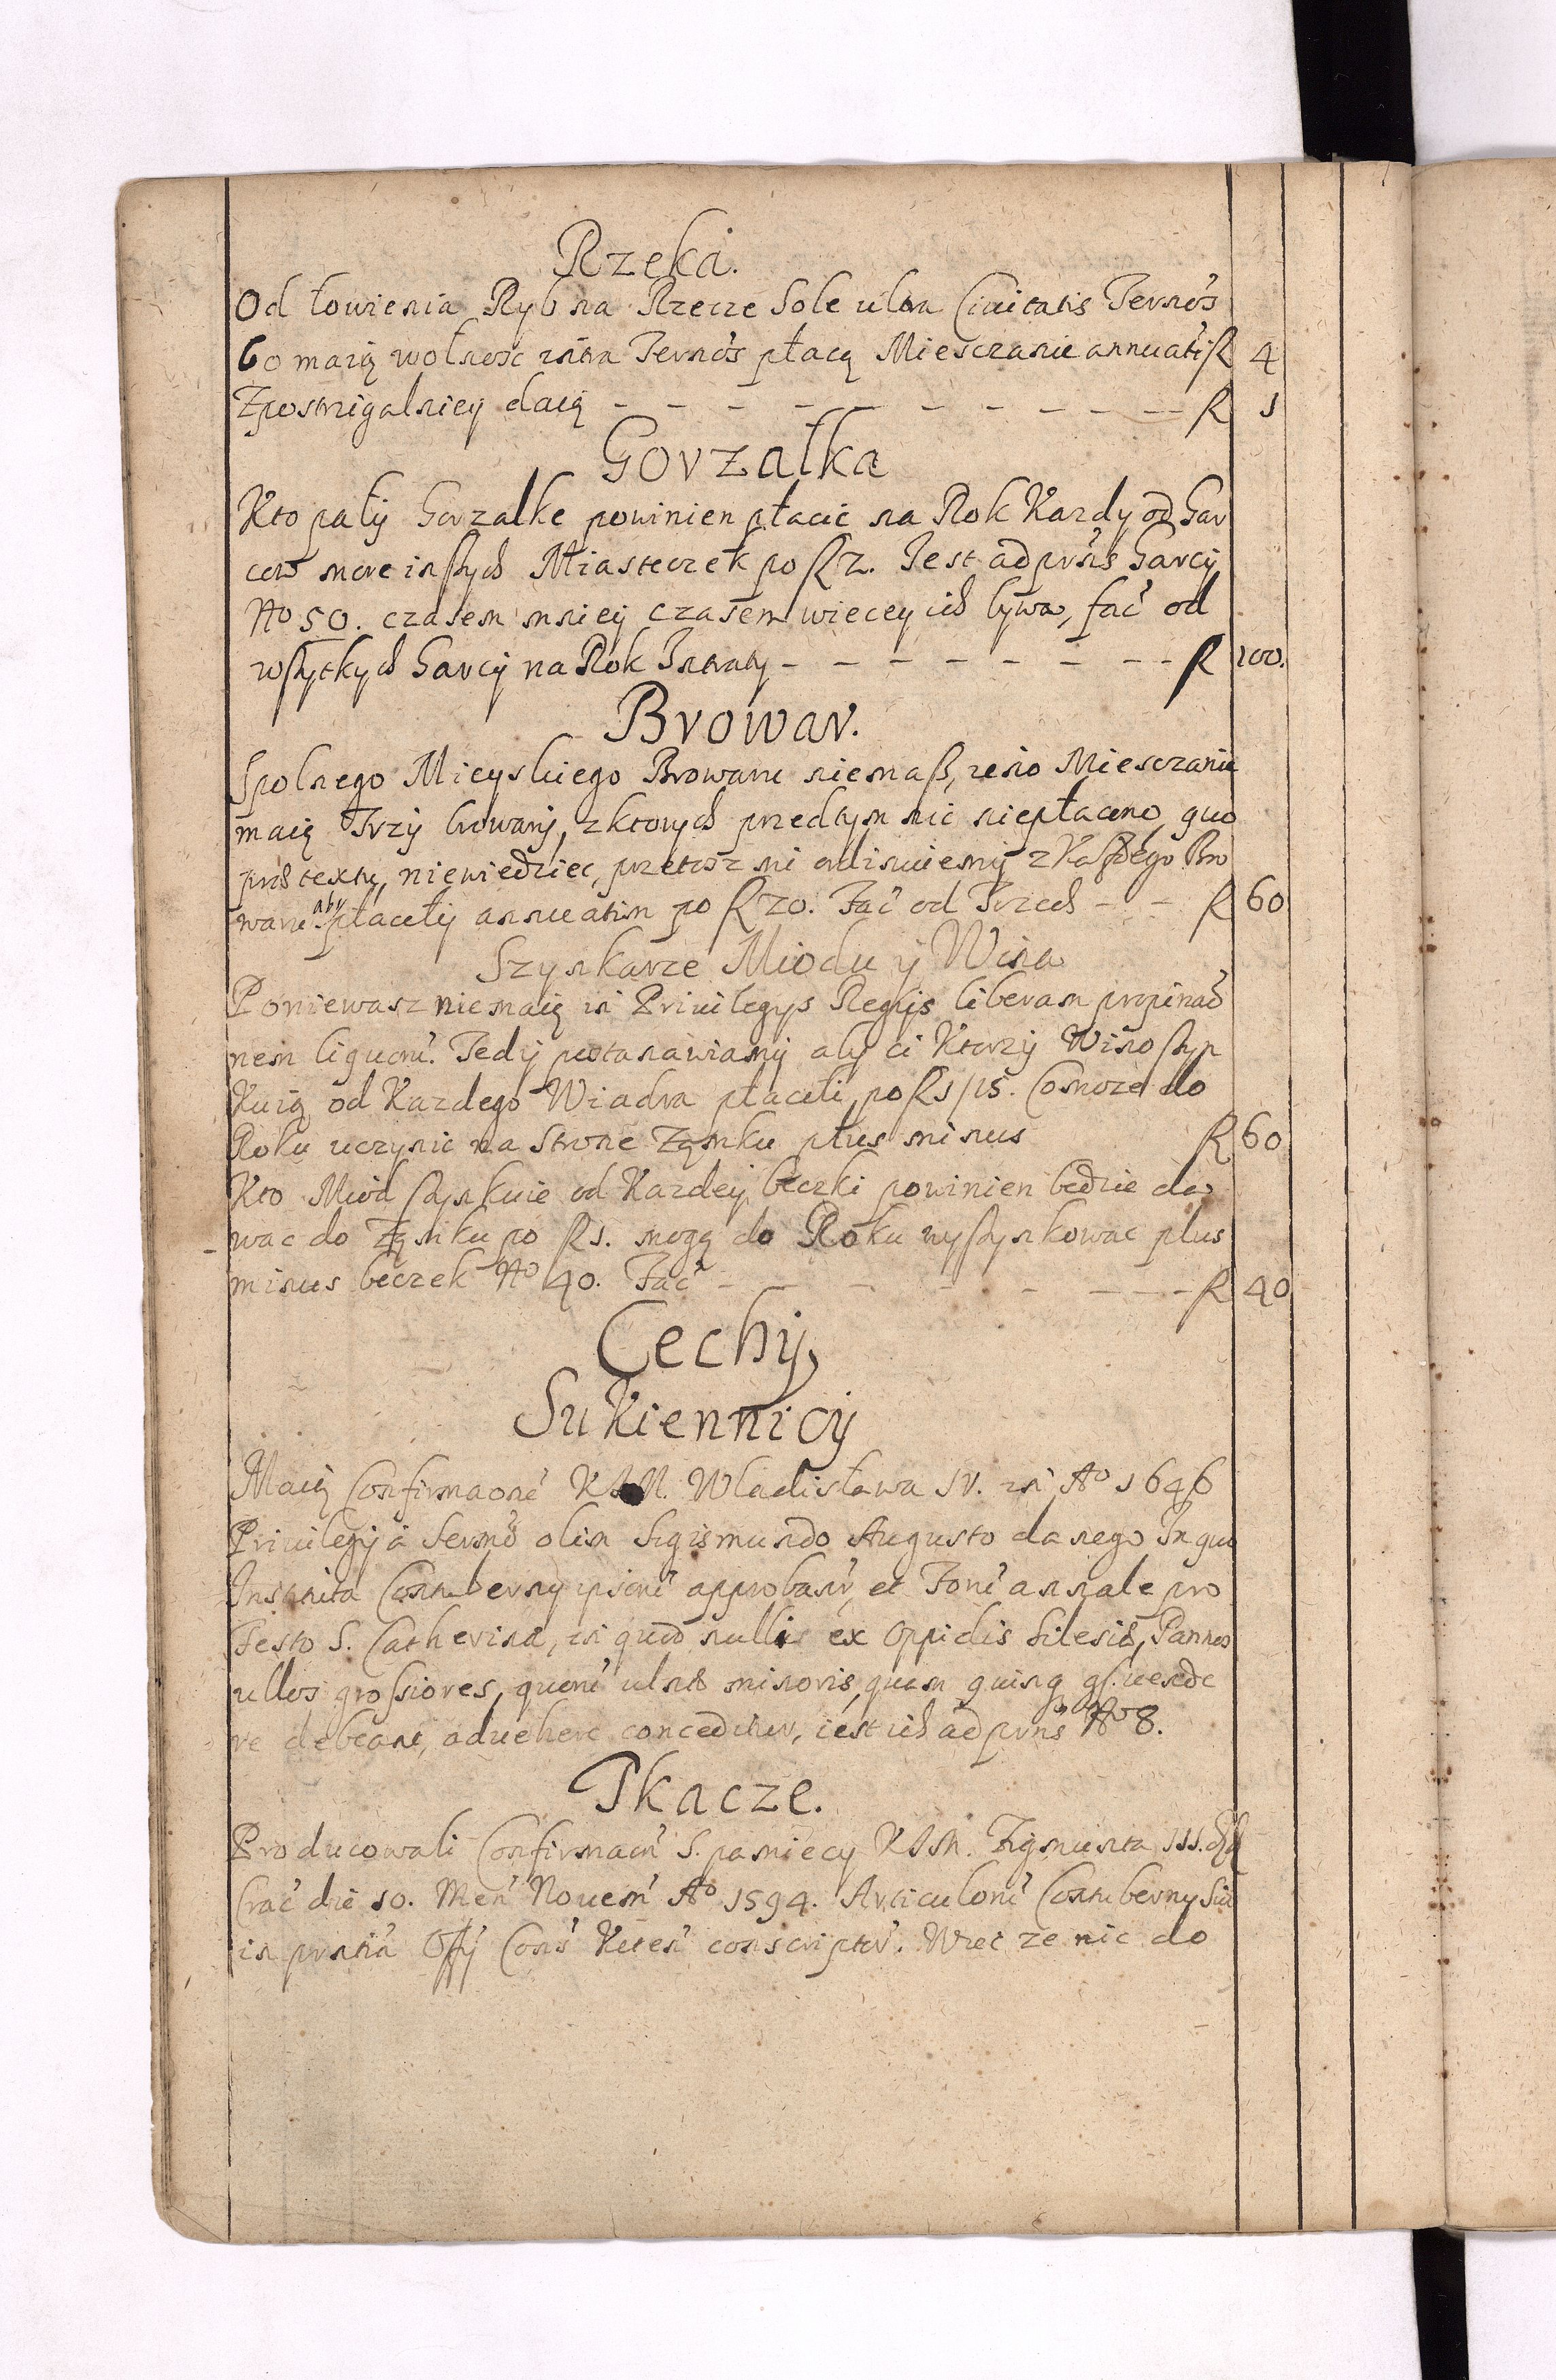 Rzeka.
Od łowienia Ryb na Rzecze Sole ultra Ciuitatis Termos
60 maią wolnosc intra Termos płacą Miesczanie annuati R 4
Z postrzigalniey daią - - - - - - - - - - R 1
Gorzałka
Kto pali Gorzalke powinien płacic na Rok Kazdy od Gar
cow more inszych Miasteczek po R 2. Jest ad pnś Garcy
No 50. czasem mniey czasem wiecey ich bywa, fać od
wszytkych Garcy na Rok Intraty - - - - - - - - R 100.
Browar.
Spolnego Mieyskiego Browaru niemasz, ieno Miesczanie
maią Trzy browary, z ktorych przedtym nic niepłacono, quo
prætextu, niewiedziec, przetosz mi ordinuiemy z Kaszdego Bro
waru aby płacely annuatim po R 20. Fać od Trzech - - R 60
Szynkarze Miodu y Wina
Poniewasz niemaią in Priuilegijs Regijs liberam propinaō
nem liquorū. Tedy postanawiamy aby ci Ktorzy Wino szyn
Kuią od Kazdego Wiadra płaceli po R 1/15. Co moze do
Roku uczynic na Strone Zamku plus minus R 60
Kto Miod szynkuie od Kazdey beczki powinien bedzie da
wac do Zamku po R 1. mogą do Roku wyszynkowac plus
minus beczek No 40. Fać - - - - - - - R 40
Cechy,
Sukiennicy
Maią Confirmaonē K.I.M. Wladisława IV. in Ao 1646
Priuilegij à Sermo olim Sigismundo Augusto danego In quo
Instituta Contubernij ipsorū approbanr, et Forū annale pro
Festo S. Catherinæ, in quod nullis ex Oppidis Silesiæ, Pannos
ullos grossiores, quorū ulnæ minoris, quam quinq gs. uende
re debeant, aduehere conceditur, iest ich ad pnś No 8.
Tkacze.
Producowali Confirmacū S. pamiecy K.I.M. Zigmunta III.
Crac die 10. Men Nouem Ao 1594. Articulorū Contubernij Sui
in pntia Offij Cons Keten conscriptor. Wiec ze nic do